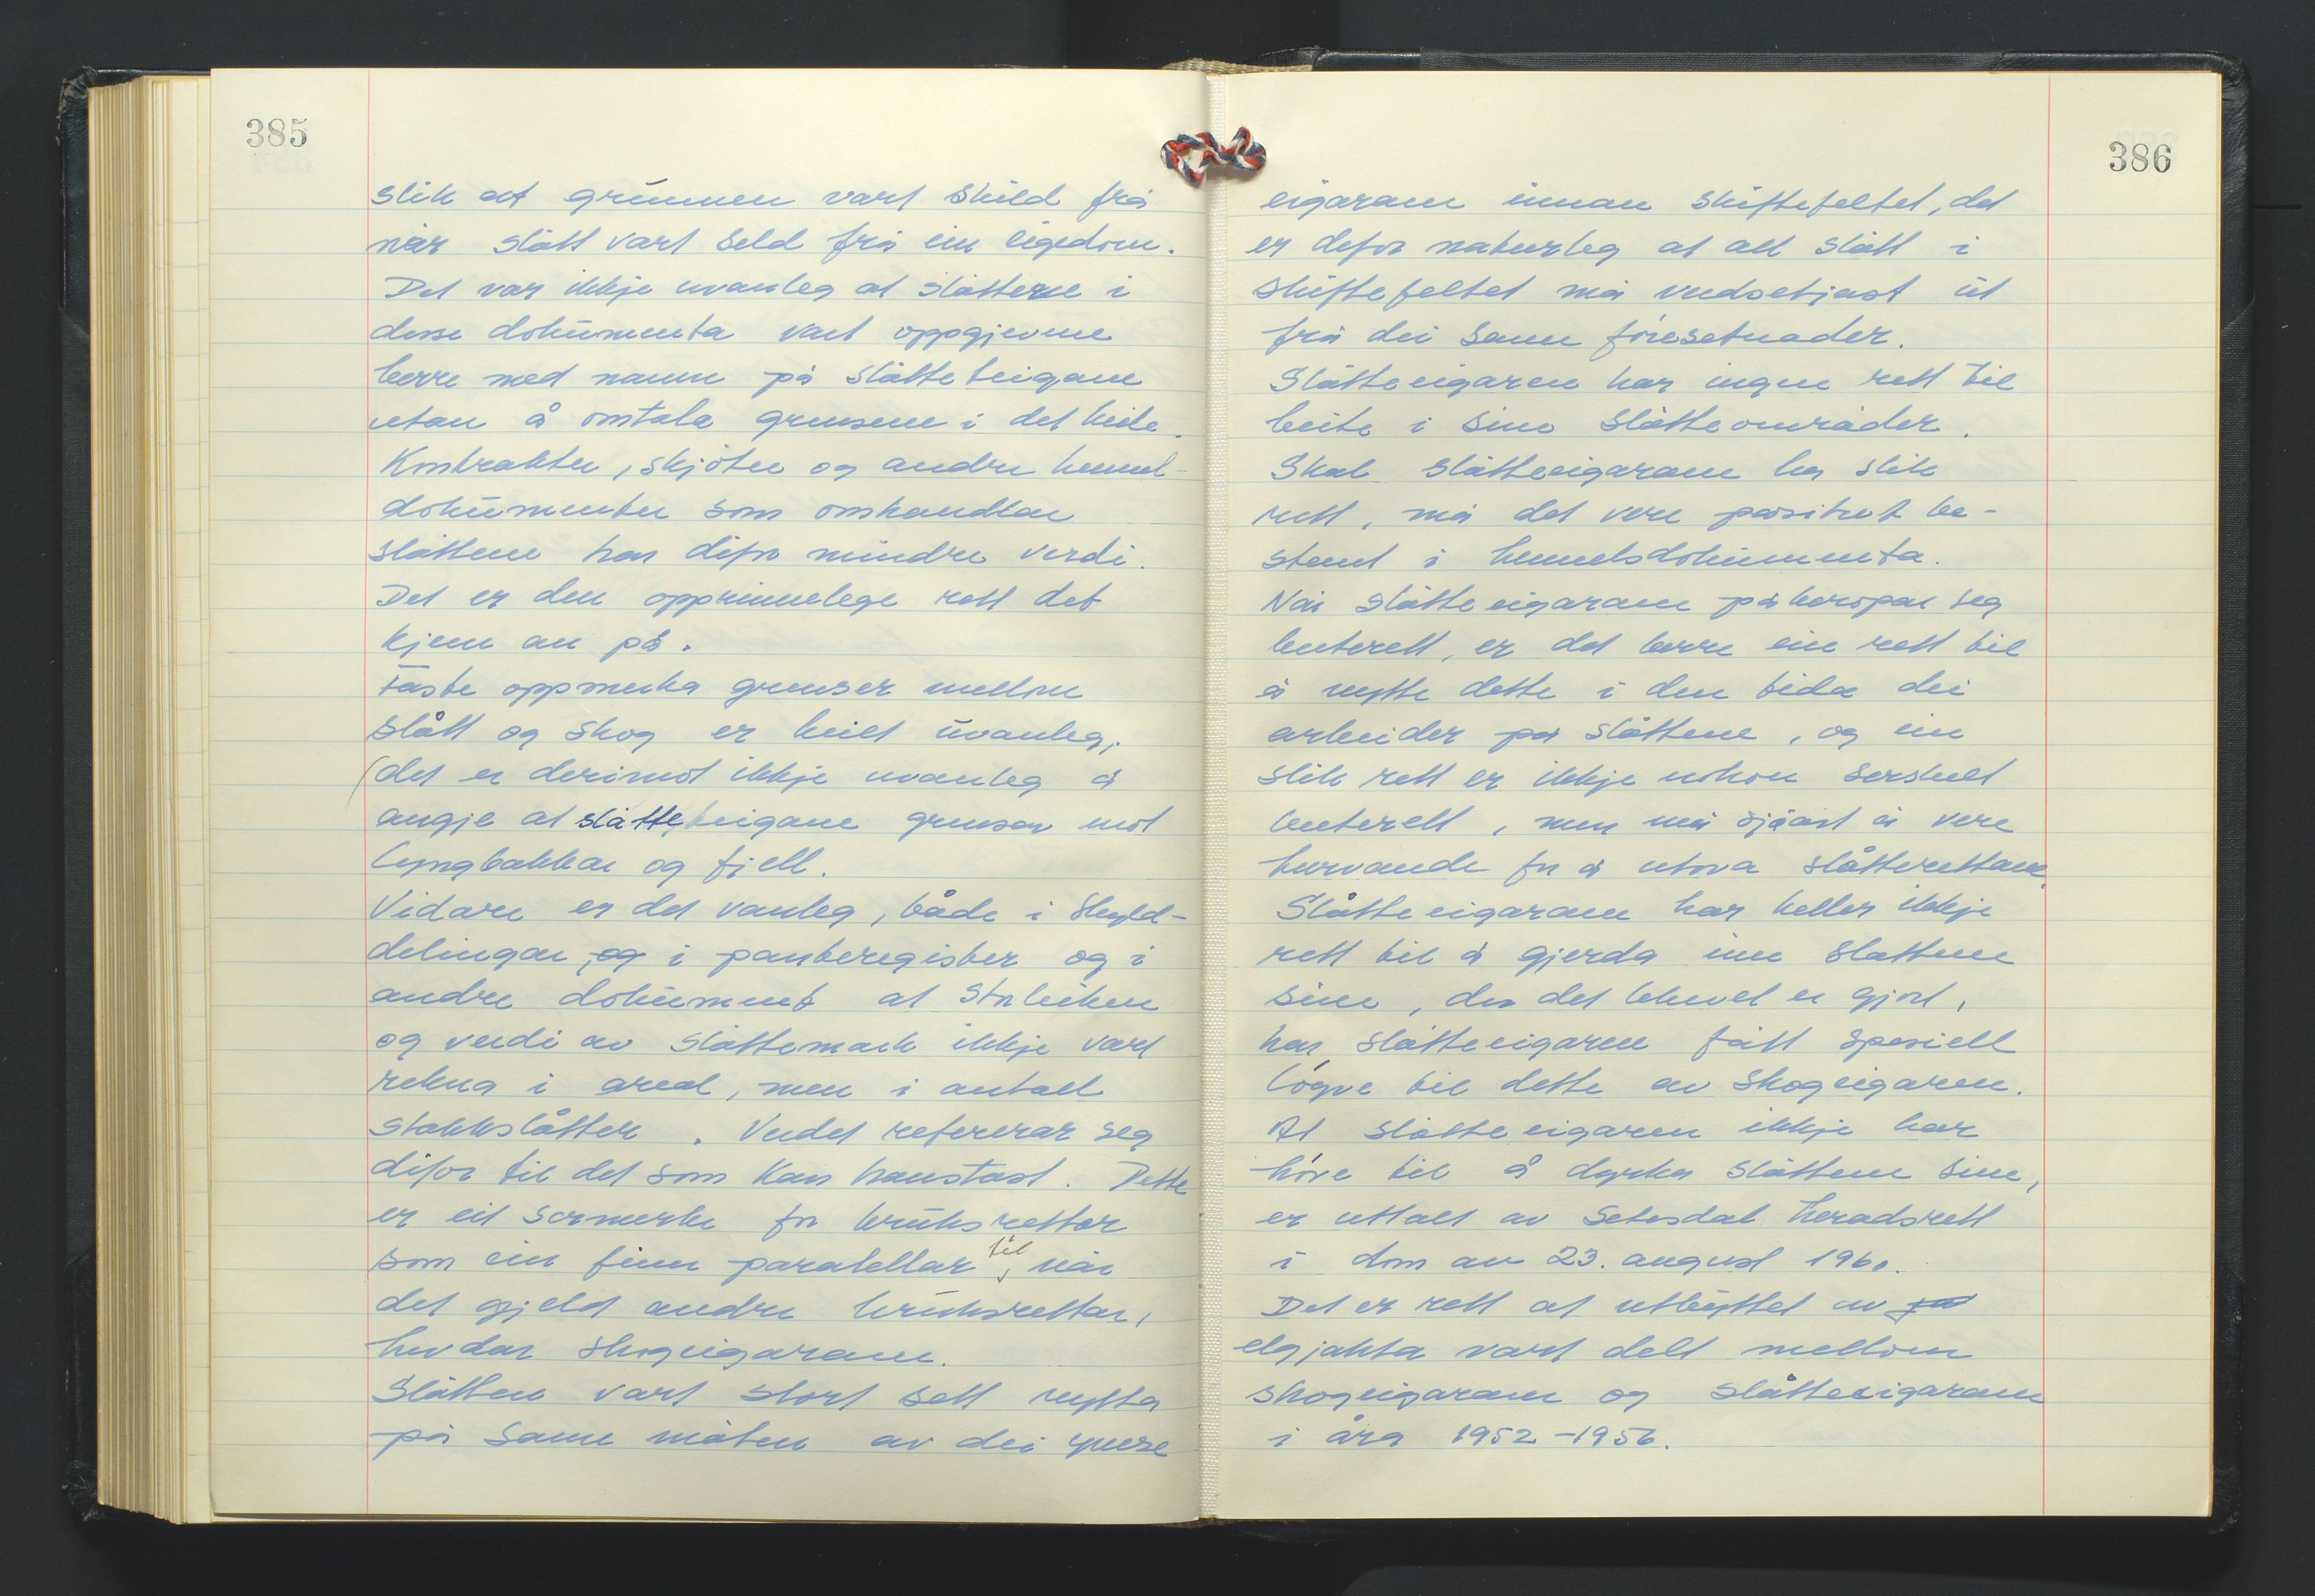 385
slik at grunnen vart skild frå
når slått vart seld frå ein eigedom.
Det var ikkje uvanleg at slåttene i
desse dokumenta vart oppgjevne
berre med namn på slåtteteigane
utan å omtala grensene i det heile.
Kontrakter, skjøter og andre heimel-
dokumenter som omhandlar
slåttene har difor mindre verdi.
Det er den opprinnelege rett det
kjem an på.
Faste oppmerka grenser mellom
slått og skog er heilt uvanleg,
(det er derimot ikkje uvanleg å
angje at slåtteteigane grensar mot
lyngbakkar og fjell.
Vidare er det vanleg, både i skyld-
delingar, og i panteregister og i
andre dokument at storleiken
og verdi av slåttemark ikkje vart
rekna i areal, men i antall
stakkslåtter. Verdet refererar seg
difor til det som kan haustast. Dette
er eit sermerke for bruksrettar
som ein finn parallellar til, når
det gjeld andre bruksrettar,
hevdar skogeigarane.
Slåtten vart stort sett nytta
på same måten av dei ymse
386
eigarane innan skiftefeltet, det
er defor naturleg at all slått i
skiftefeltet må verdsetjast ut
frå dei same føresetnader.
Slåtteeigaren har ingen rett til
beite i sine slåtteområder.
Skal slåtteeigarane ha slik
rett, må det vere positivt be-
stemt i heimelsdokumenta.
Når slåtteeigarane påberopar seg
beiterett, er det berre ein rett til
å nytte dette i den tida dei
arbeider på slåttene, og ein
slik rett er ikkje nokon serskilt
beiterett, men må sjåast å vere
turvande for å utøva slåtterettane.
Slåtteeigarane har heller ikkje
rett til å gjerda inn slåttene
sine, der det likevel er gjort,
har slåtteeigaren fått spesiell
løyve til dette av skogeigaren.
At slåtteeigaren ikkje har
høve til å dyrka slåttene sine,
er uttalt av Setesdal heradsrett
i dom av 23. august 1960.
Det er rett at utbyttet av
elgjakta vart delt mellom
skogeigarane og slåtteeigarane
i åra 1952-1956.